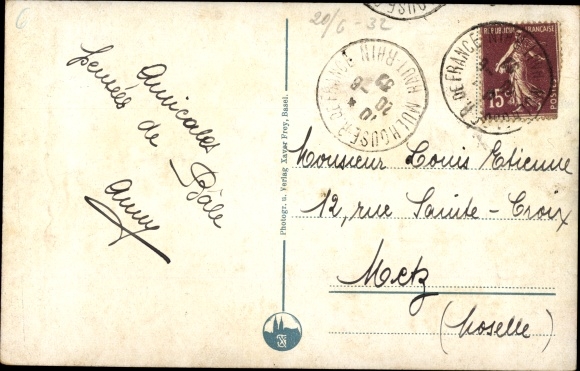 6
20/6-32
Amicales
pensées de Bâle
Anny
Photogr. u. Verlag Xaver Frey, Basel.
MULHOUSE R. DE FRANCE
HAUT-RHIN
REPUBLIQUE FRANÇAISE
15
POSTES
Monsieur Louis Etienne
12, rue Sainte-Croix
Metz
(Moselle)